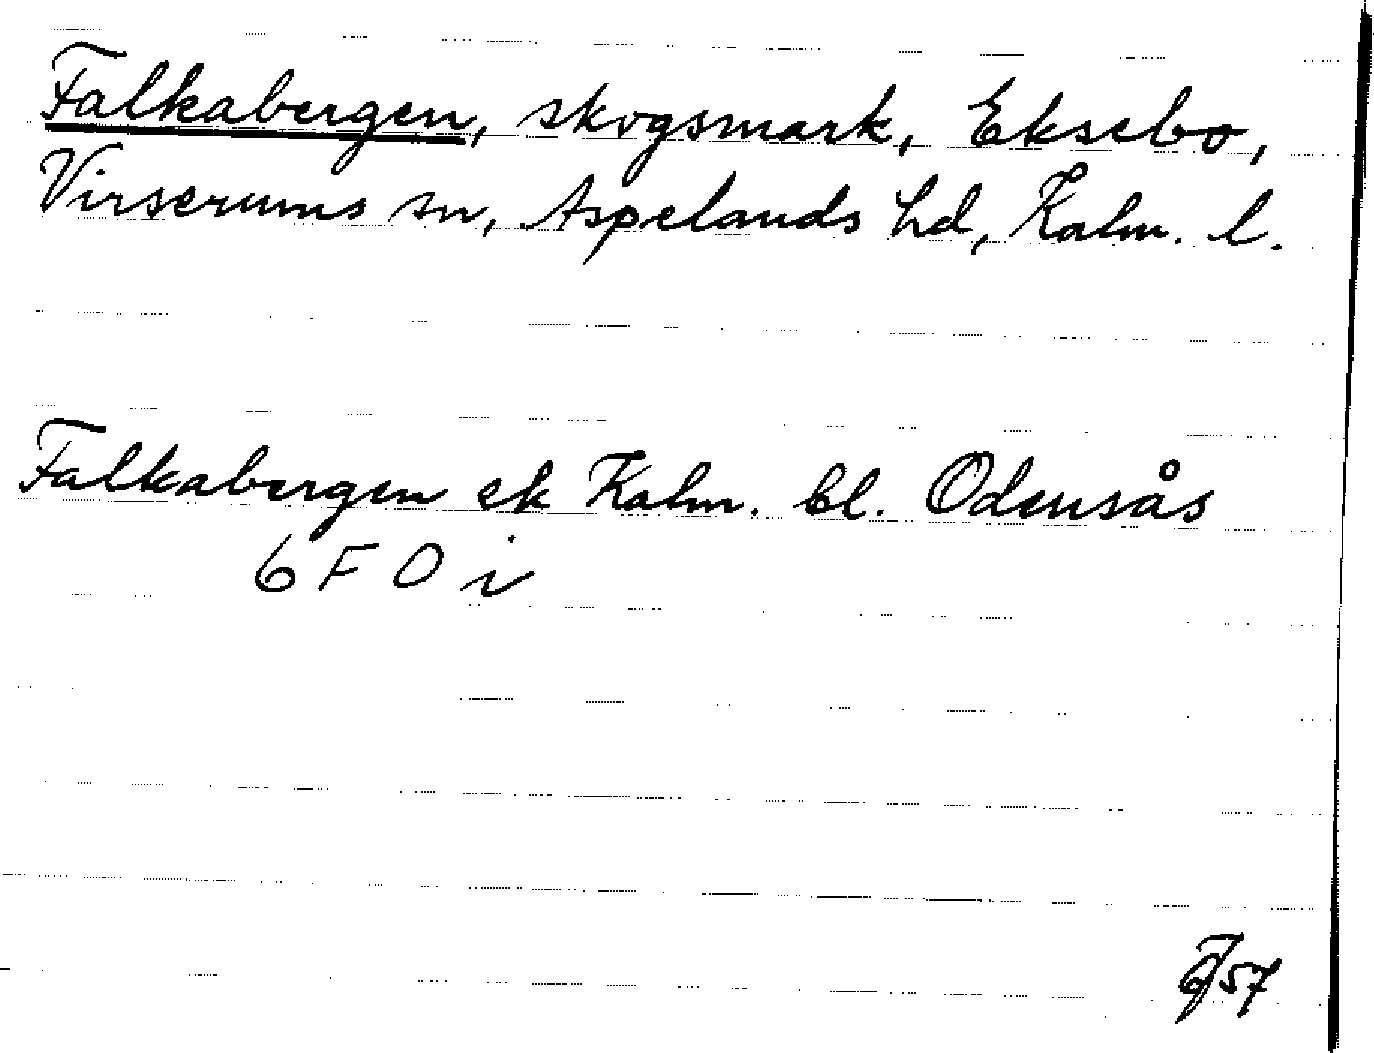 Falkabergen, skogsmark, Eksebo,
Virserums sn, Aspelands hd, Kalm. l.
Falkabergen ek Kalm. bl. Odensås
6 F O i